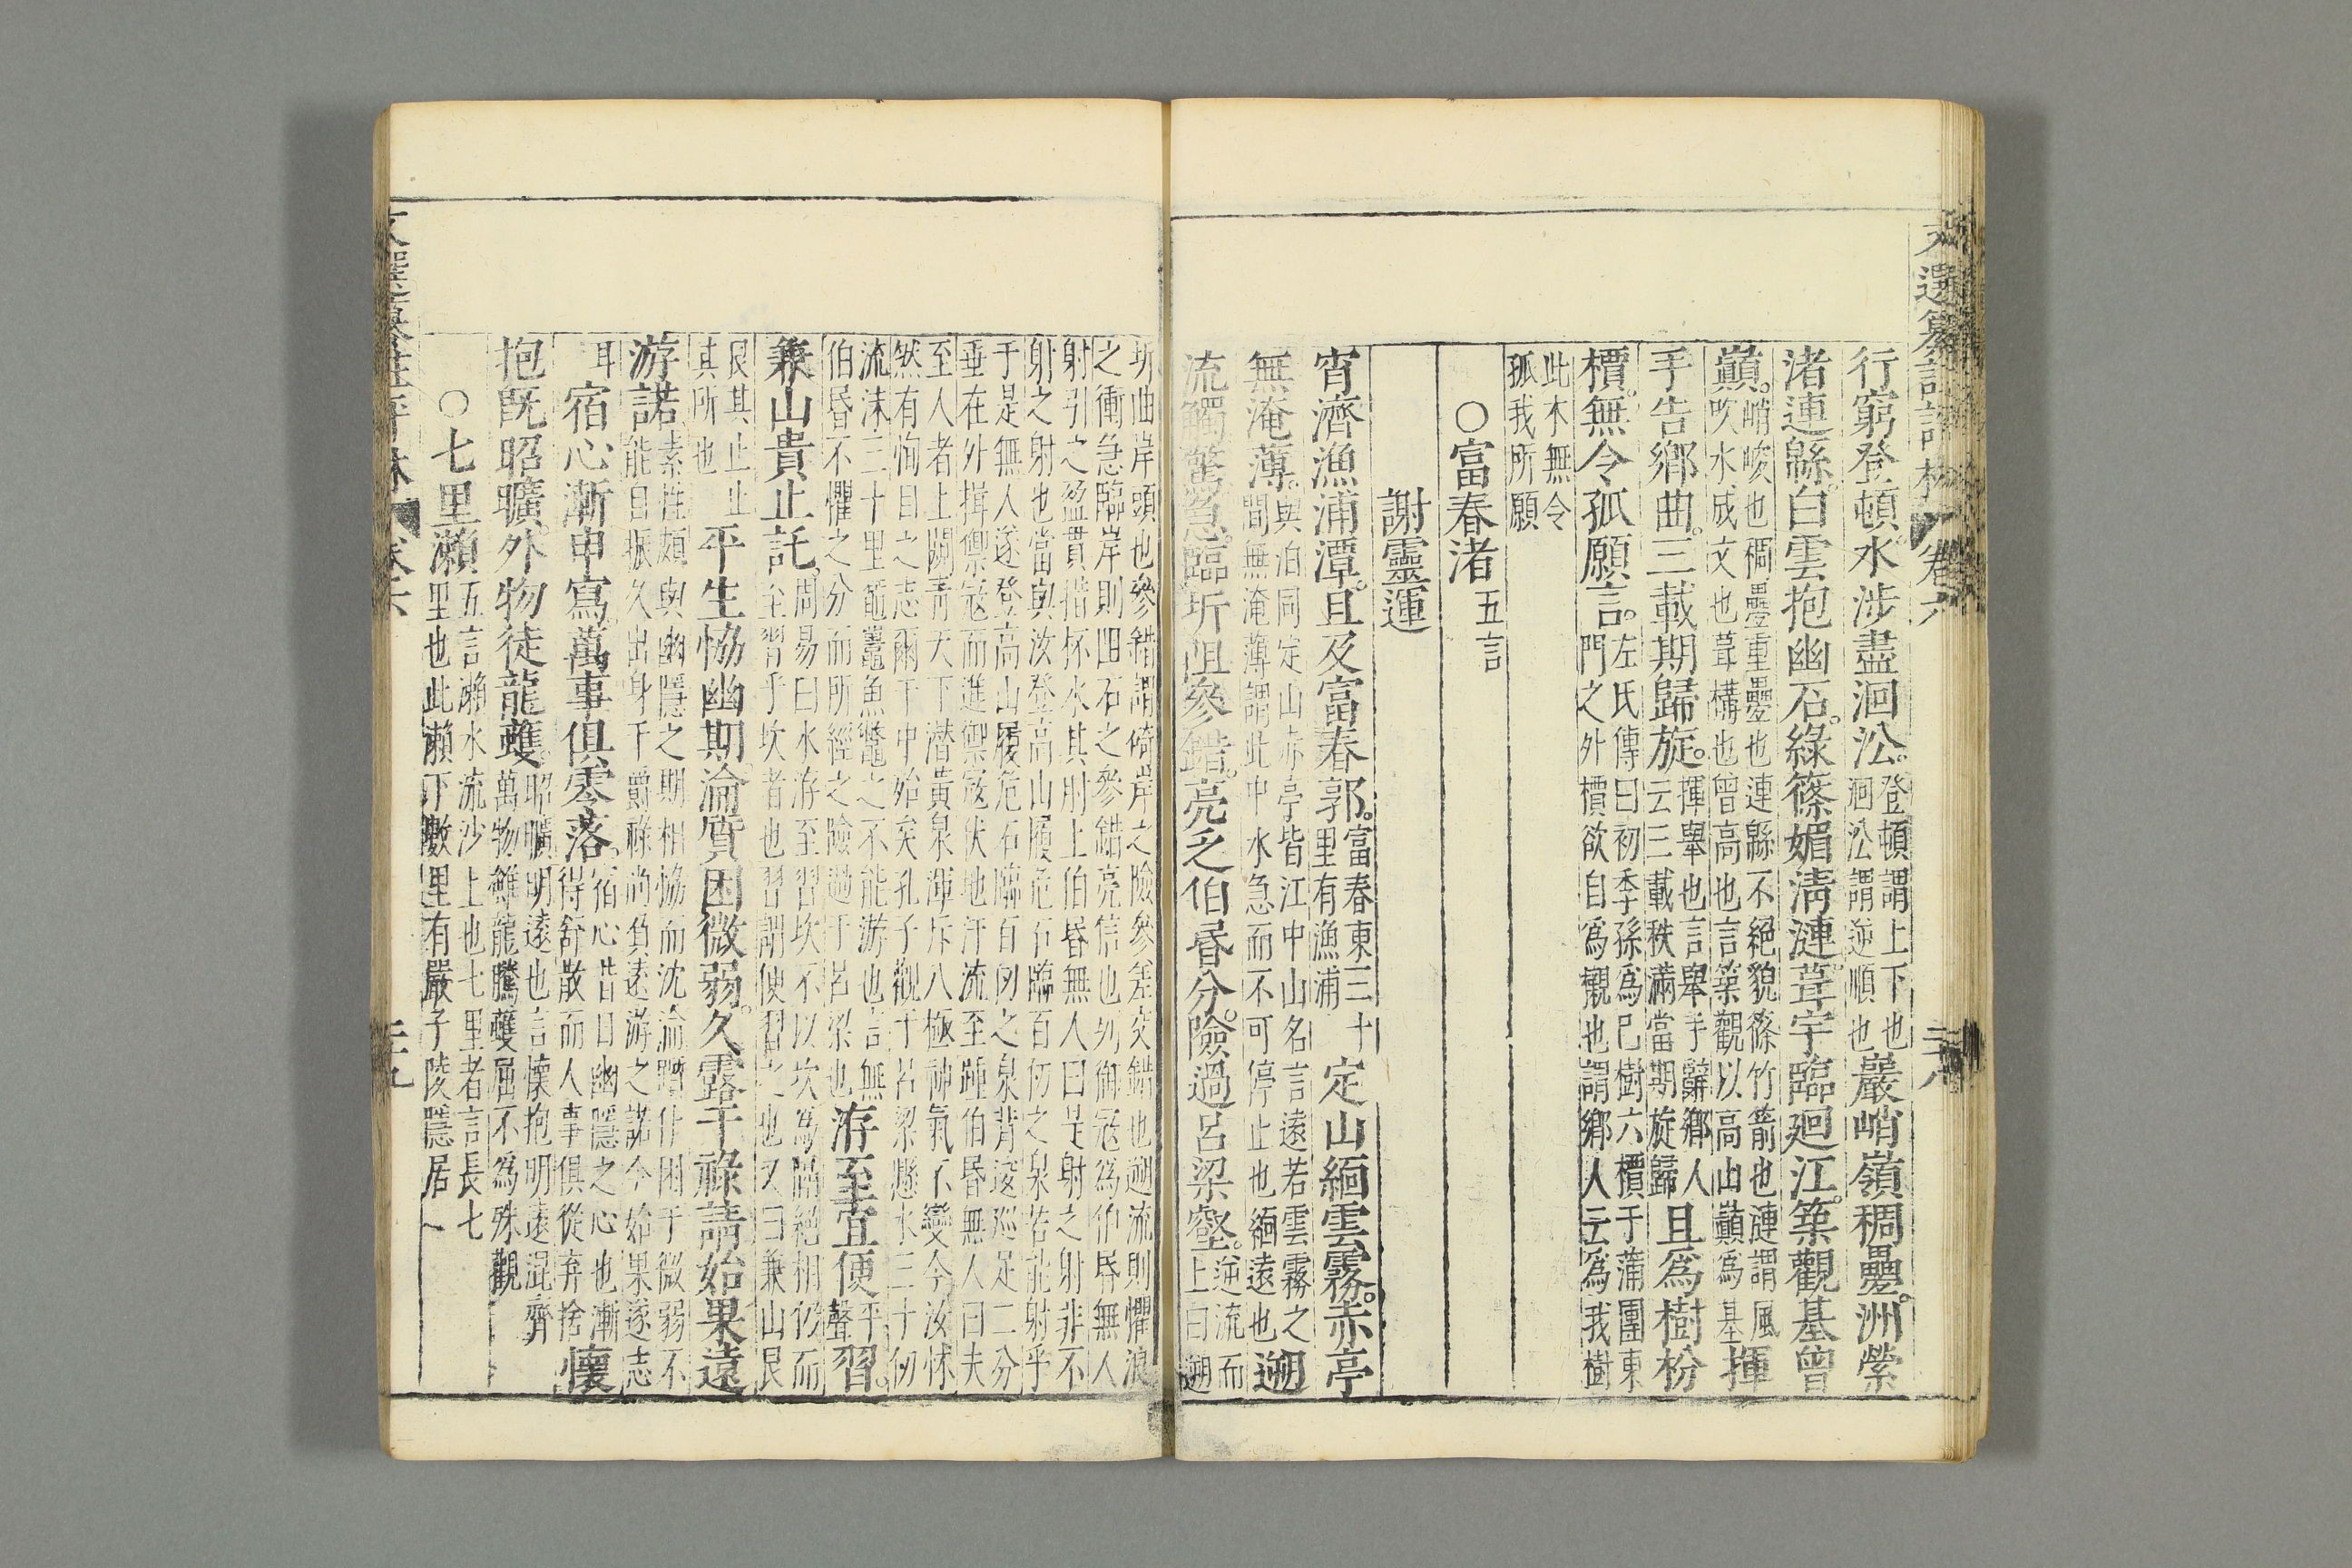 文選纂註評林 卷六 二十八
行窮登頓水涉盡洄沿登頓謂上下也洄沿謂逆順也巖峭嶺稠疊洲縈
渚連緜白雲抱幽石綠篠媚淸漣葺宇臨廻江築觀基曾
巓峭峻也稠疊重疊也連緜不絕貌篠竹箭也漣謂風吹水成文也葺構也曾高也言築觀以高山巓爲基揮
手告鄉曲三載期歸旋揮舉也言舉手辭鄉人云三載秩滿當期旋歸且爲樹枌
檟無令孤願言左氏傳曰初季孫爲己樹六檟于蒲圃東門之外檟欲自爲櫬也謂鄉人云爲我樹
此木無令孤我所願
○富春渚五言
謝靈運
宵濟漁浦潭旦及富春郭富春東三十里有漁浦定山緬雲霧赤亭
無淹薄與泊同定山赤亭皆江中山名言遠若雲霧之間無淹薄謂此中水急而不可停止也緬遠也遡
流觸驚急臨圻阻參錯亮乏伯昏分險過呂梁壑逆流而上曰遡
圻曲岸頭也參錯謂碕岸之險參差交錯也遡流則懼浪
之衝急臨岸則阻石之參錯亮信也列御寇爲伯昏無人
射引之盈貫措杯水其肘上伯昏無人曰是射之射非不
射之射也當與汝登高山履危石臨百仞之泉若能射乎
于是無人遂登高山履危石臨百仞之泉背逡巡足二分
垂在外揖禦寇而進禦寇伏地汗流至踵伯昏無人曰夫
至人者上闚靑天下潛黃泉渾斥八極神氣不變今汝怵
然有恂目之志爾于中殆矣孔子觀于呂梁懸水三十仞
流沫三十里黿鼉魚鼈之不能游也言無伯昏不懼之分而所經之險過于呂梁也洊至宜便平聲習
兼山貴止託周易曰水洊至習坎不以坎爲隔絕相仍而至習乎坎者也習謂便習之也又曰兼山艮
艮其止止其所也平生恊幽期淪躓困微弱久露干祿請始果遠
游諾素性頗與幽隱之期相恊而沈淪躓仆困于微弱不能自振久出身干爵祿尚負遠游之諾今始果遂志
耳宿心漸申寫萬事俱零落宿心昔日幽隱之心也漸得舒散而人事俱從弃捨懷
抱旣昭曠外物徒龍蠖昭曠明遠也言懷抱明遠混齊萬物雖龍騰蠖屈不爲殊觀
○七里瀨五言瀨水流沙上也七里者言長七里也此瀨下數里有嚴子陵隱居一
文選纂註評林 卷六 二十九